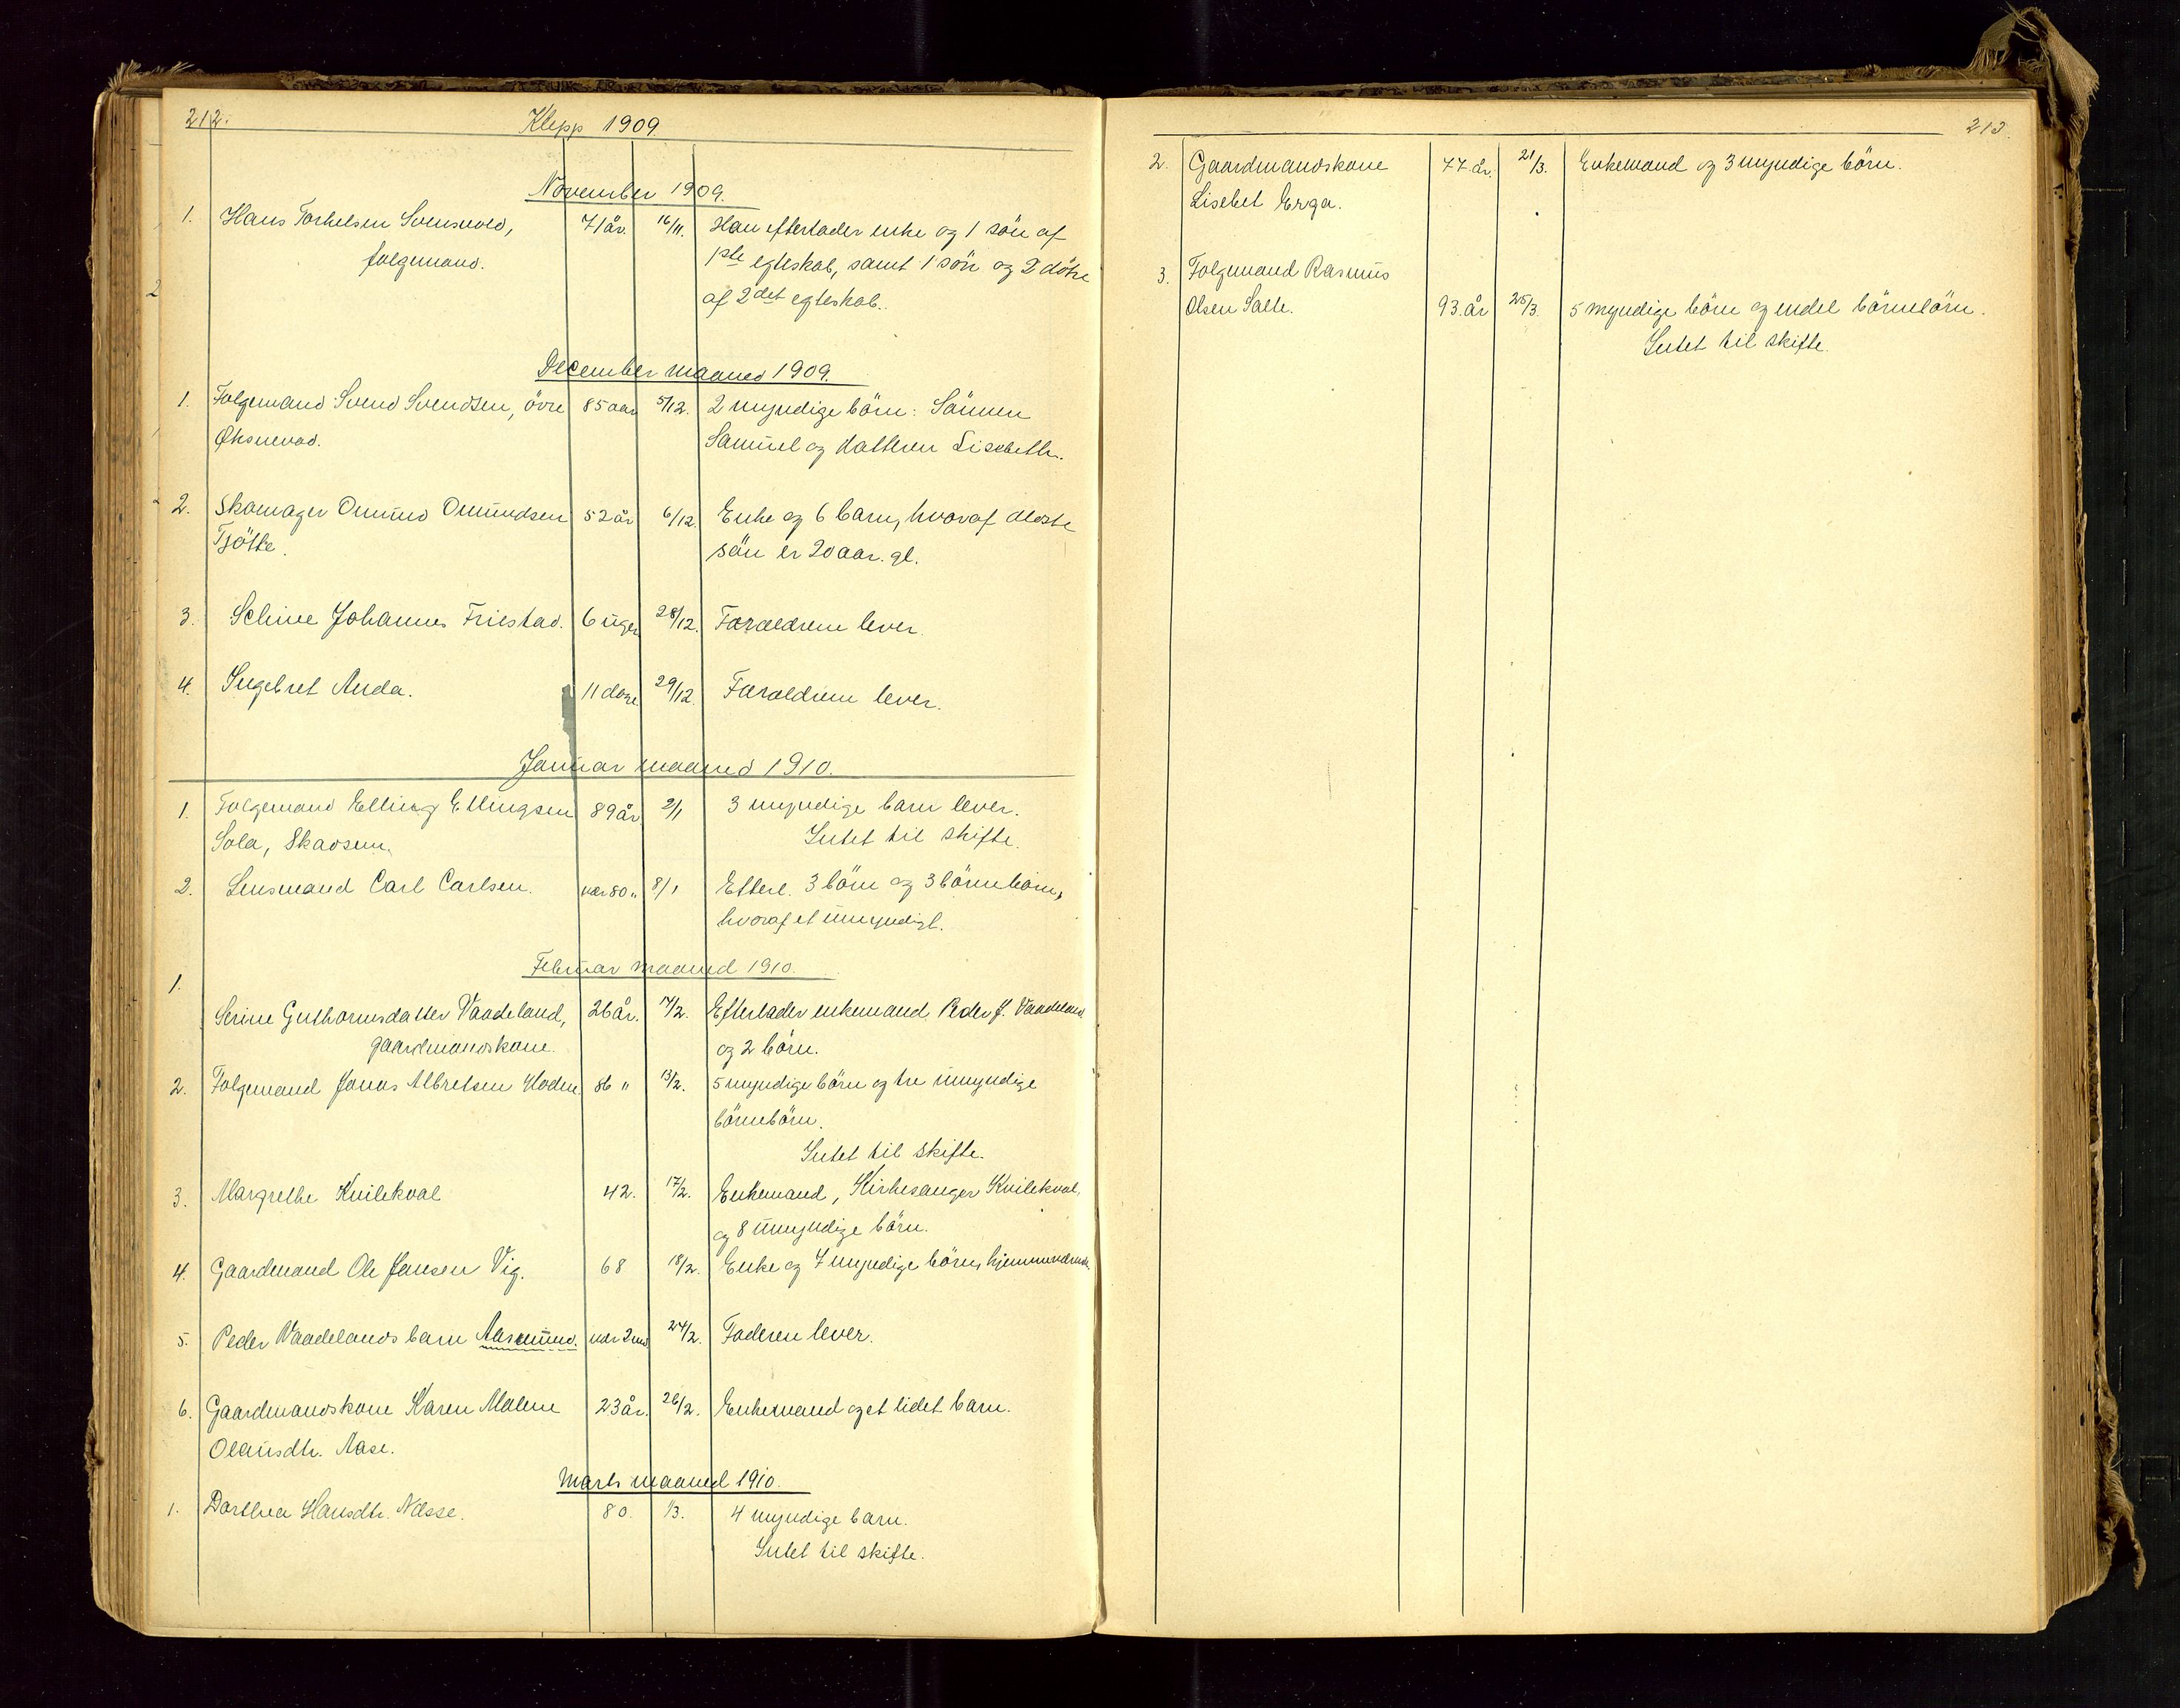 212.
Klepp 1909
November 1909.
1. Hans Torkelsen Svensvold, 71 år. 16/11. Han efterlader enke og 1 sön af
folgemand. 1ste egteskab, samt 1 sön og 2 dötre
af 2det egteskab.
December maaned 1909.
1. Folgemand Svend Svendsen, övre 85 aar 5/12. 2 myndige börn: Sönnen
Øksnevad. Samuel og datteren Lisebeth.
2. Skomager Omund Omundsen 52 år 6/12. Enke og 6 barn, hvoraf ældste
Tjötte. sön er 20 aar. gl.
3. Seline Johannes Friestad. 6 uger 28/12. Forældrene lever.
4. Ingebret Anda. 11 dage 29/12. Forældrene lever.
Januar maaned 1910.
1. Folgemand Elling Ellingsen 89 år. 2/1 3 myndige barn lever.
Sola, Skadsem. Intet til skifte.
2. Lensmand Carl Carlsen. nær 80 " 8/1 Efterl. 3 börn og 3 börnebörn,
hvoraf et umyndigt.
Februar maaned 1910.
1.
Serine Guthormsdatter Vaadeland, 26 år. 7/2. Efterlader enkemand Peder J. Vaadeland
gaardmandskone. og 2 börn.
2. Folgemand Jonas Albretsen Hodne. 86 " 13/2. 5 myndige börn og tre umyndige
börnebörn.
Intet til skifte.
3. Margrethe Kvilekval 42. 17/2. Enkemand, Kirkesanger Kvilekval,
og 8 umyndige börn.
4. Gaardmand Ole Jansen Vig. 68 18/2. Enke og 7 myndige börn, hjemmeværende.
5. Peder Vaadelands barn Aasmund. nær 2 md. 24/2. Faderen lever.
6. Gaardmandskone Karen Malene 23 år. 26/2. Enkemand og et lidet barn.
Olausdtr. Aase.
Marts maaned 1910.
1. Dorthea Hansdtr. Næsse. 80. 1/3. 4 myndige barn.
Intet til skifte.
213.
2. Gaardmandskone 77. år. 21/3. Enkemand og 3 myndige börn.
Lisebet Erga.
3. Folgemand Rasmus
Olsen Salte. 93. år 25/3. 5 myndige börn og endel börnebörn.
Intet til skifte.